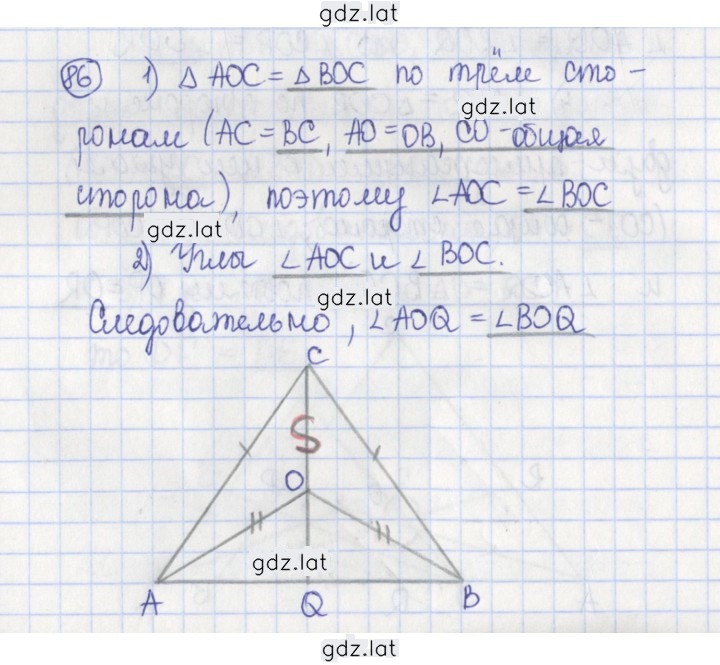 gdz.lat
86 1) △ AOC = △ BOC по трём сто-
gdz.lat
ронам (AC = BC, AO = OB, CO - общая
сторона), поэтому ∠AOC = ∠BOC
gdz.lat
2) Углы ∠AOC и ∠ BOC.
gdz.lat
Следовательно, ∠AOQ = ∠BOQ
C
S
O
gdz.lat
A Q B
gdz.lat